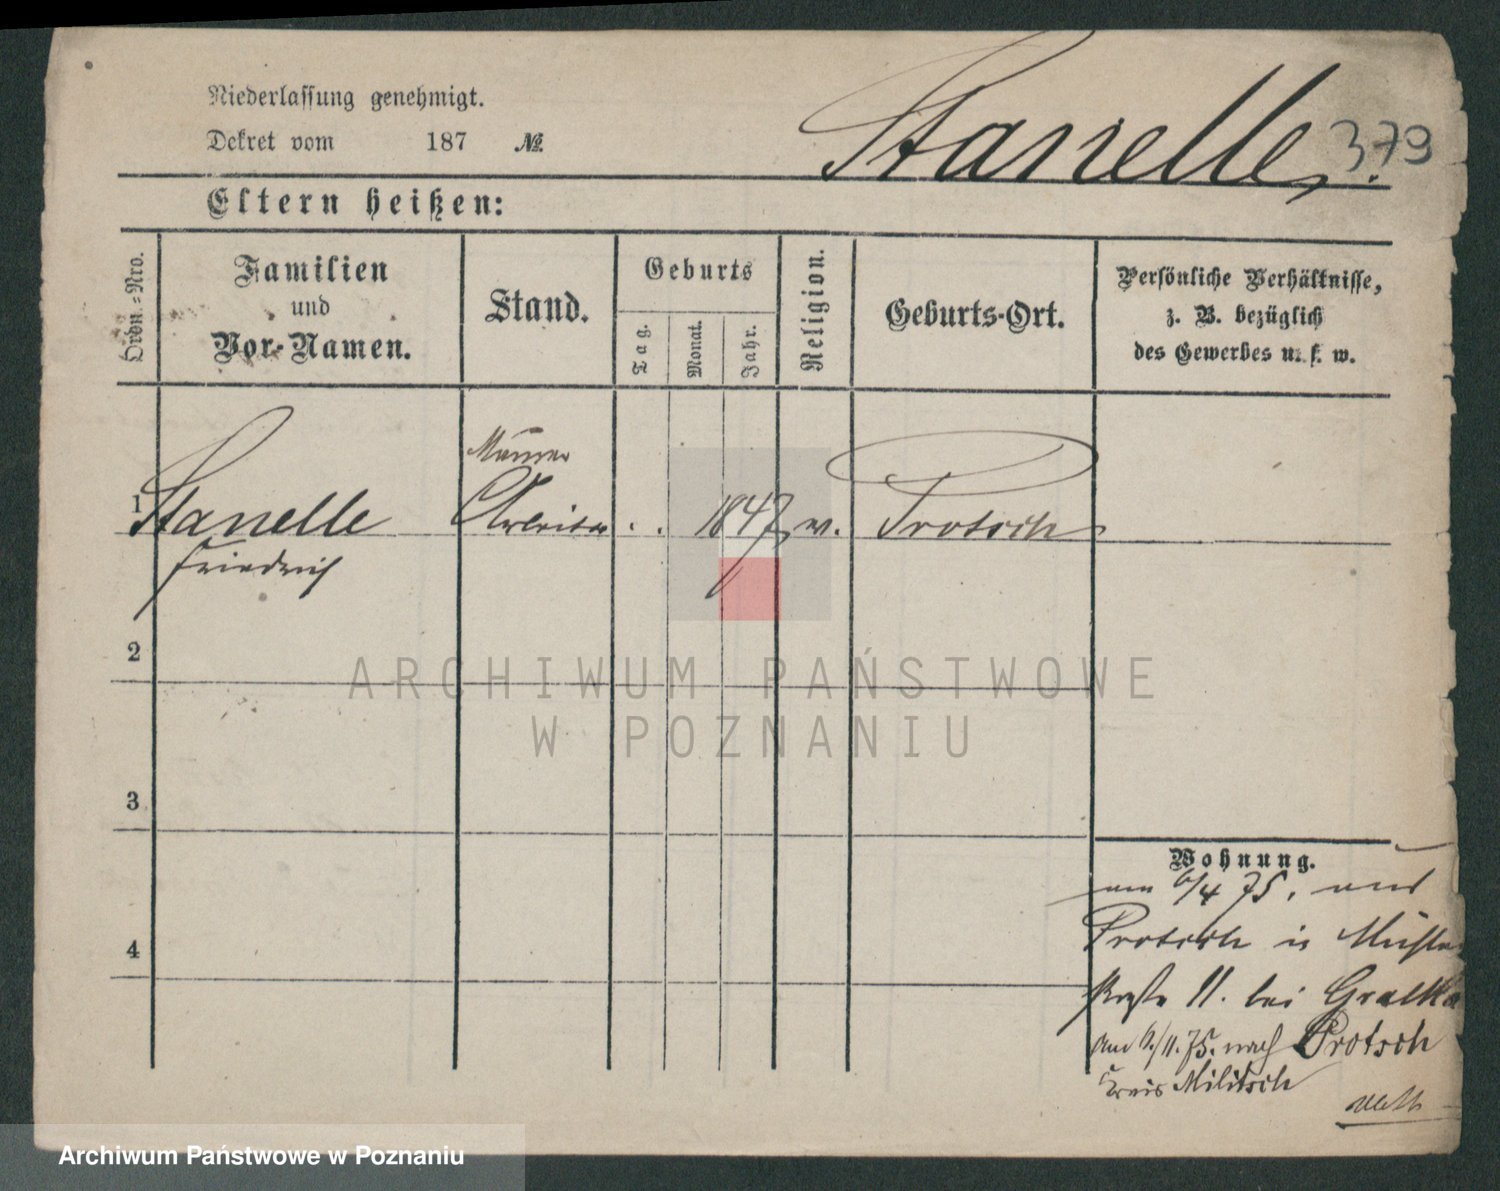 Niederlassung genehmigt.
Dekret vom 187 №
Stanelle. 379
Eltern heißen:
Ordn.=Nro.
Familien
und
Vor-Namen.
Stand.
Geburts
Tag.
Monat.
Jahr.
Religion.
Geburts-Ort.
Persönliche Verhältnisse,
z. B. bezüglich
des Gewerbes u. s. w.
Maurer
1 Stanelle Arbeiter . . 1847, ev. Protsch
Friedrich
2
ARCHIWUM PAŃSTWOWE
W POZNANIU
3
4
Wohnung.
am 6/4 75. aus
Protsch in Mühlen
straße 11. bei Gralka
am 6./11.75. nach Protsch
Kreis Militsch
Archiwum Państwowe w Poznaniu